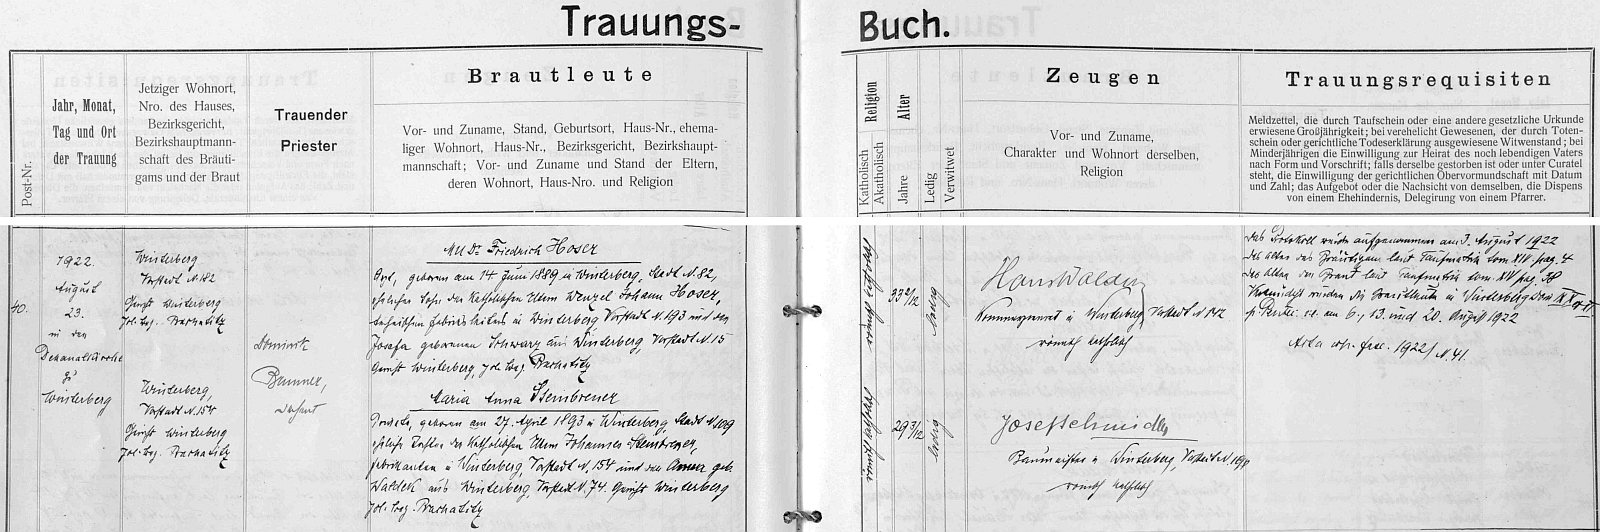 Trauungs-
Buch.
Post-Nr.
Jahr, Monat,
Tag und Ort
der Trauung
Jetziger Wohnort,
Nro. des Hauses,
Bezirksgericht,
Bezirkshauptmann-
schaft des Bräuti-
gams und der Braut
Trauender
Priester
Brautleute
Vor- und Zuname, Stand, Geburtsort, Haus-Nr., ehema-
liger Wohnort, Haus-Nr., Bezirksgericht, Bezirkshaupt-
mannschaft; Vor- und Zuname und Stand der Eltern,
deren Wohnort, Haus-Nro. und Religion
Religion
Katholisch
Akatholisch
Alter
Jahre
Ledig
Verwitwet
Zeugen
Vor- und Zuname,
Charakter und Wohnort derselben,
Religion
Trauungsrequisiten
Meldzettel, die durch Taufschein oder eine andere gesetzliche Urkunde
erwiesene Großjährigkeit; bei verehelicht Gewesenen, der durch Toten-
schein oder gerichtliche Todeserklärung ausgewiesene Witwenstand; bei
Minderjährigen die Einwilligung zur Heirat des noch lebendigen Vaters
nach Form und Vorschrift; falls derselbe gestorben ist oder unter Curatel
steht, die Einwilligung der gerichtlichen Obervormundschaft mit Datum
und Zahl; das Aufgebot oder die Nachsicht von demselben, die Dispens
von einem Ehehindernis, Delegirung von einem Pfarrer.
40.
1922.
August
23.
in der
Dekanalkirche
zu
Winterberg
Winterberg
Vorstadt N. 182
Gericht Winterberg
pol. Bez. Prachatitz
Winterberg,
Vorstadt N. 154
Gericht Winterberg
pol. Bez. Prachatitz
Dominik
Dechant
MUDr Friedrich Hoser
Arzt, geboren am 14. Juni 1889 in Winterberg, Stadt N. 82,
ehelicher Sohn der katholischen Eltern Wenzel Johann Hoser,
in Winterberg Vorstadt N. 193 und der
Josefa geborenen Schwarz aus Winterberg, Vorstadt N. 15
Gericht Winterberg, pol. Bez. Prachatitz
Maria Anna Steinbrener
Private, geboren am 27. April 1893 in Winterberg Stadt N. 109
eheliche Tochter der katholischen Eltern Johannes Steinbrener,
Fabrikanten in Winterberg, Vorstadt N. 154 und der Anna geb.
Waldek aus Winterberg, Vorstadt N. 74. Gericht Winterberg
pol. Bez. Prachatitz
römisch katholisch
33 2/12
ledig
römisch katholisch
29 3/12
ledig
Hans Walden
in Winterberg, Vorstadt N. 142
römisch katholisch
Josef Schmidl
Baumeister in Winterberg, Vorstadt N.
römisch katholisch
Das Protokoll wurde aufgenommen am 3. August 1922
Das Alter des Bräutigams laut Taufmatrik tom. XIV. pag. 4
Das Alter der Braut laut Taufmatrik tom. XIV pag. 58
Verkündigt wurden die Brautleute in Winterberg
am 6., 13. und 20. August 1922
1922 / N. 41.